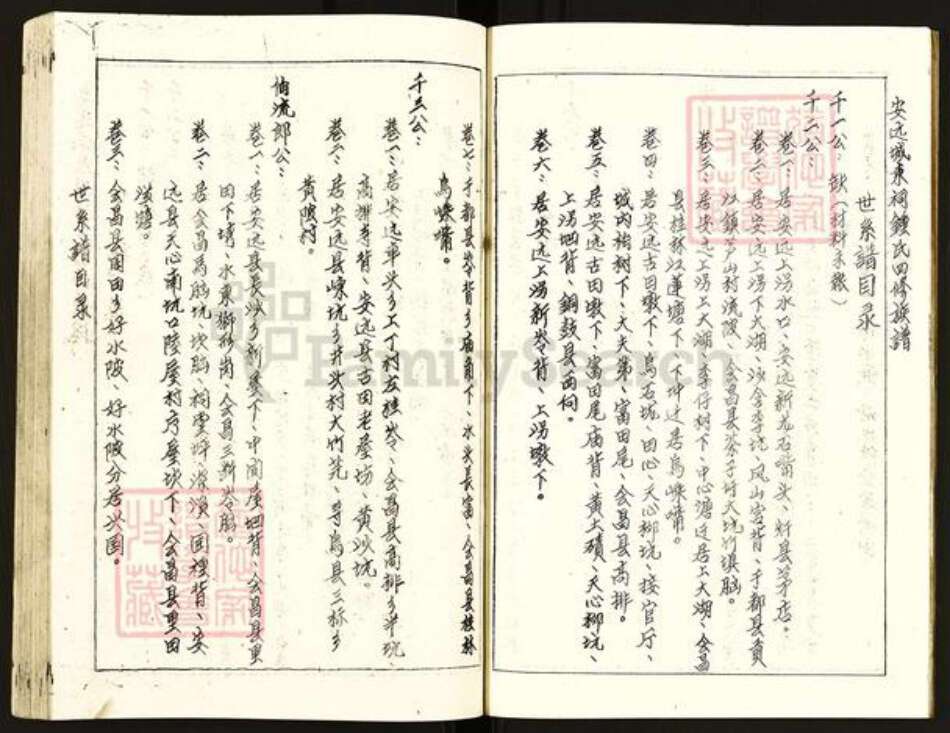 安远城东祠钟氏四修族谱
世系譜目录
千一公：缺（材料未缴）
千二公：
卷一：居安远上湯水口、安远新龙石嘴头、虾县茅店。
卷二：居安远上湯下大湖、沙含李坑、凤山宫背、于都县貢
江鎮芦山村流陂、会昌县茶子圩大坑竹填脑。
卷三：居安远上湯上大湖、李仔树下、中心塘迁居上大湖、会昌
县桂林江蓮塘下、下坪迁居烏嵊嘴。
卷四：居安远古田墩下、烏石坑、田心、天心柳坑、接官厅、
城内柏树下、大夫第、富田尾、会昌县高排。
卷五：居安远古田墩下、富田尾庙背、黄土磧、天心柳坑、
上湯坝背、銅鼓县西向。
卷六：居安远上湯新岺背、上湯墩下。
卷七：于都县岺背乡庙角下、水头長富、会昌县桂林
烏嵊嘴。
千三公：
卷一：居安远車头乡上丁村左桂岺、会昌县高排乡半坑、
高排寺背、安远县古田老屋坊、黄沙坑。
卷二：居安远县嵊坑乡井头村大竹芫、寻烏县三标乡
黄陂河。
伯流郎公：
卷一：居安远县長沙乡新寨下、中间屋坝背、会昌县里
田下堉、水東獅形岗、会昌三料岺脑。
卷二：居会昌馬脑坑、坎脑、祠堂坪滚演、围裡背、安
远县天心南坑口陸屋村序屋坎下、会昌县里田
滚塘。
卷三：会昌县围田乡好水陂、好水陂分居兴国。
世系譜目录
FamilySearch